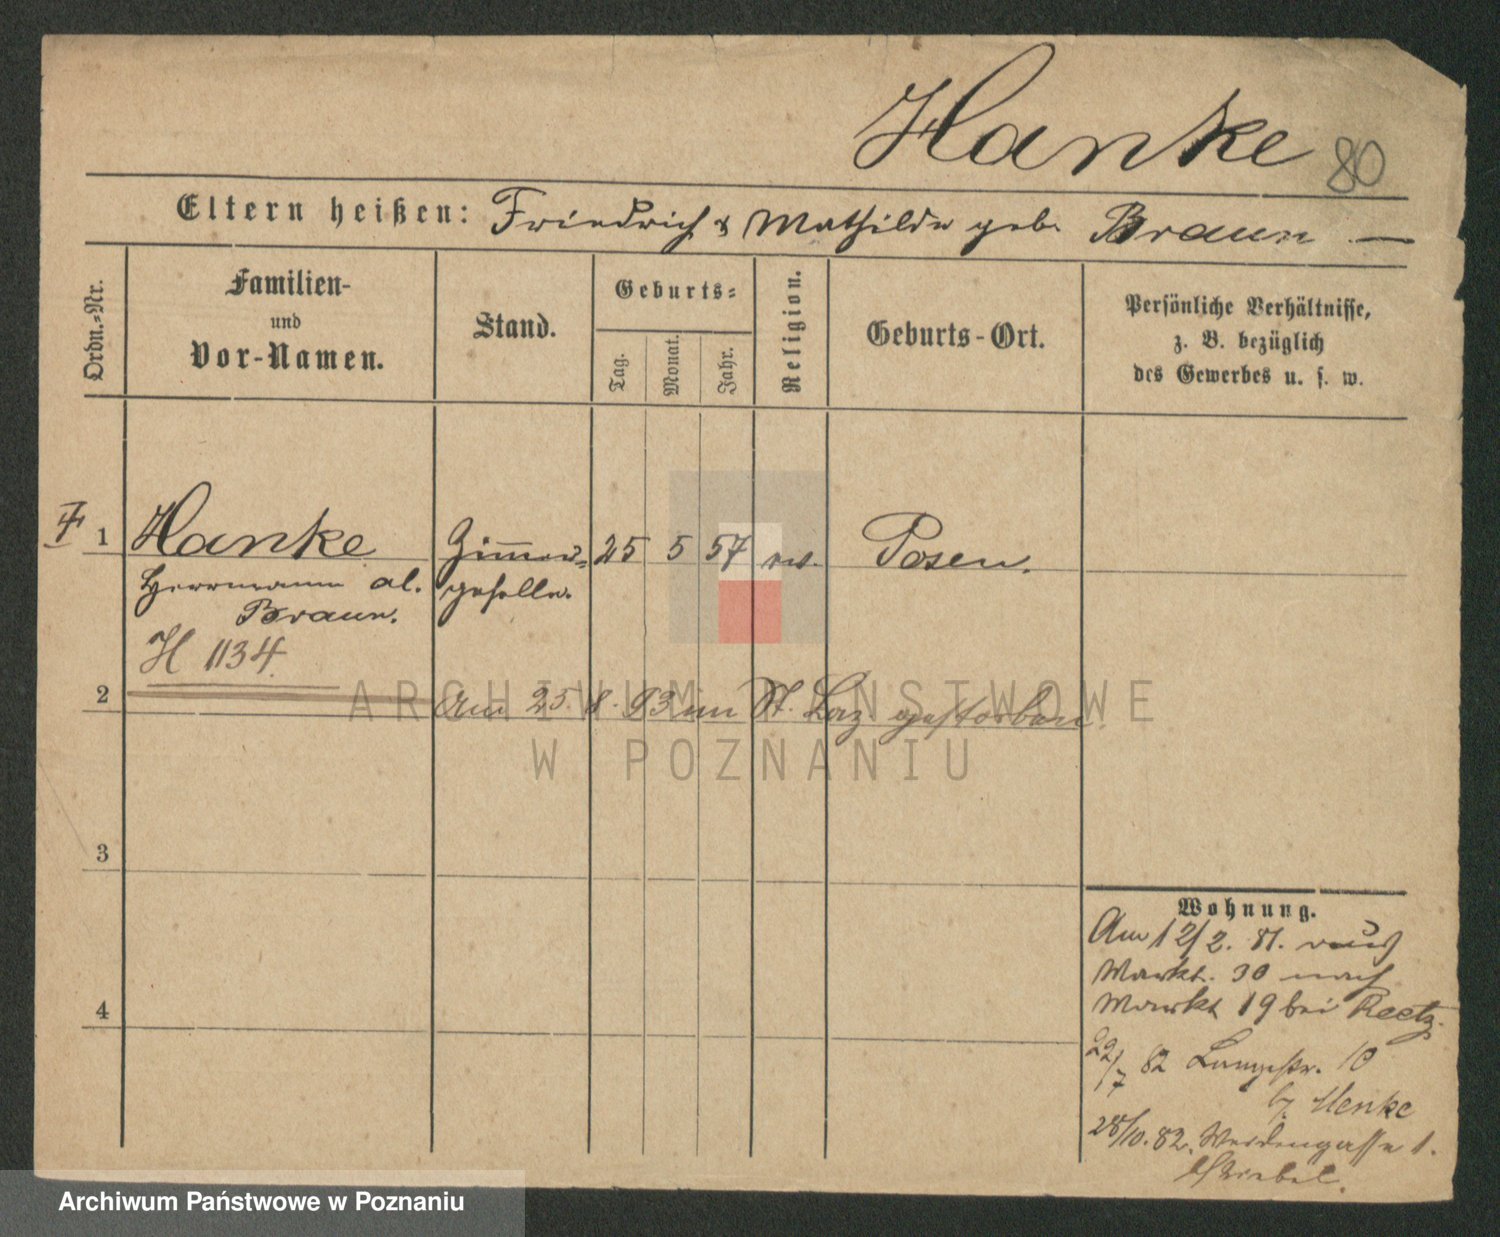 Hanke 80
Eltern heißen: Friedrich & Mathilde geb. Braun —
Ordn.-Nr.
Familien-
und
Vor-Namen.
Stand.
Geburts-
Tag.
Monat.
Jahr.
Religion.
Geburts-Ort.
Persönliche Verhältnisse,
z. B. bezüglich
des Gewerbes u. s. w.
1 Hanke Zimmer- 25 5 57 ev. Posen.
Herrmann al. geselle.
Braun.
H 1134.
2 Am 25. 8. 93 im St. Laz gestorben.
3
4
Wohnung.
Am 12/2. 81.
Markt. 30 nach
Markt 19 bei Reetz.
22/7 82 Langestr. 10
b. Henke
28/10. 82. Weidengasse 1.
ARCHIWUM PAŃSTWOWE
W POZNANIU
Archiwum Państwowe w Poznaniu